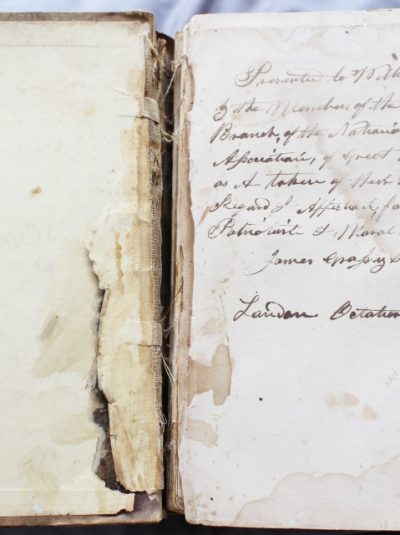 Presented to W. Cu
by the Members of the
Branch, of the National
Association, of Great
as A token of their
Regard & Approval, for
Patriotic & Moral
James
London October